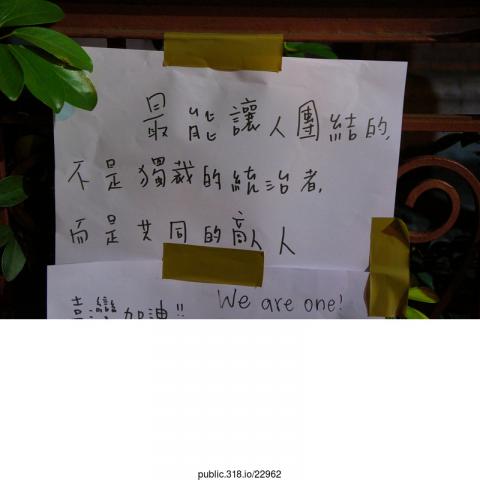 最能讓人團結的,
不是獨裁的統治者,
而是共同的敵人
We are one!
臺灣加油!!
public.318.io/22962